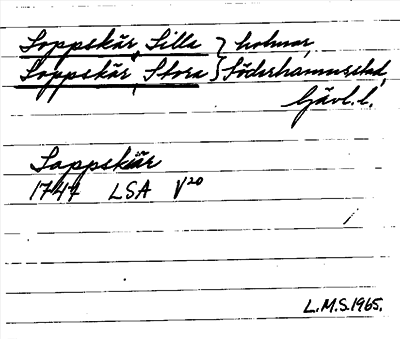 Soppskär, Lilla } holmar,
Soppskär, Stora } Söderhamns stad,
Gävl. l.
Soppskiär
1747 LSA V20
L.M.S. 1965.